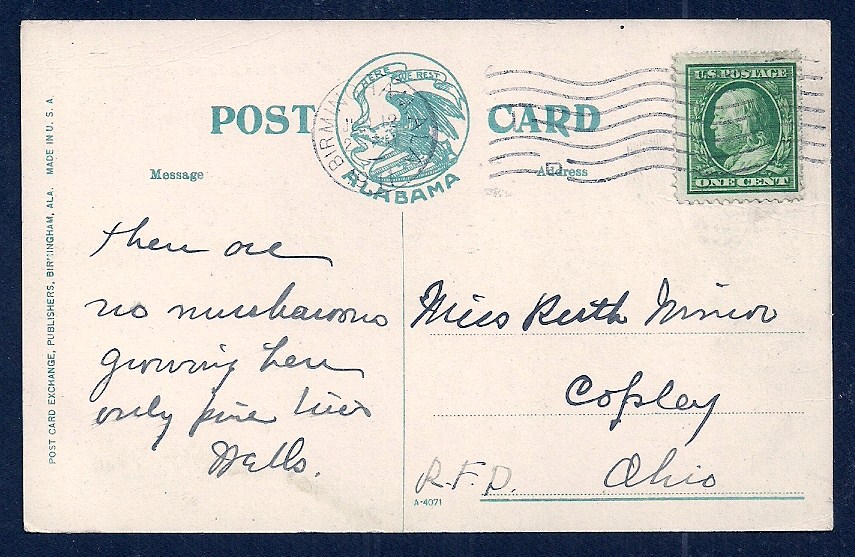 POST CARD
HERE WE REST
ALABAMA
BIRMIN ALA
U.S. POSTAGE
ONE CENT
Message
Address
there are
no mushrooms
growing here
only pine trees
Wells.
Miss Ruth Minor
Copley
R.F.D. Ohio
A-4071
POST CARD EXCHANGE, PUBLISHERS, BIRMINGHAM, ALA. MADE IN U. S. A.